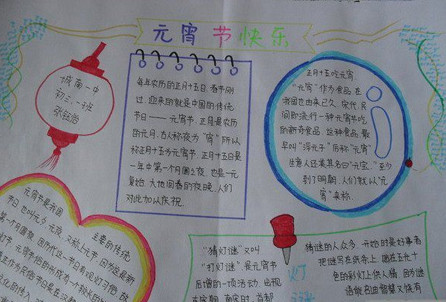 元宵节快乐
城南一中
初三.一班
每年农历的正月十五日,春节刚
过,迎来的就是中国的传统
节日——元宵节.正月是农历
的元月,古人称夜为"宵"所以
称正月十五为元宵节.正月十五日是
一年中第一个月圆之夜,也是一元
复始,大地回春的夜晚,人们
对此加以庆祝.
正月十五吃元宵
"元宵"作为食品,在
我国也由来已久.宋代,民
间即流行一种元宵节吃
的新奇食品.这种食品,最
早叫"浮元子"后称"元宵"
生意人还美其名曰"元宝"
元宵节是我国
主要的传统
"猜灯谜"又叫
"打灯谜"是元宵节
后增的一项活动,出现
在宋朝.南宋时,首都
猜谜的人众多.开始时是好事者
把谜写在纸条上,贴在五光十
色的彩灯上供人猜.因为
谜能启迪智慧又饶有